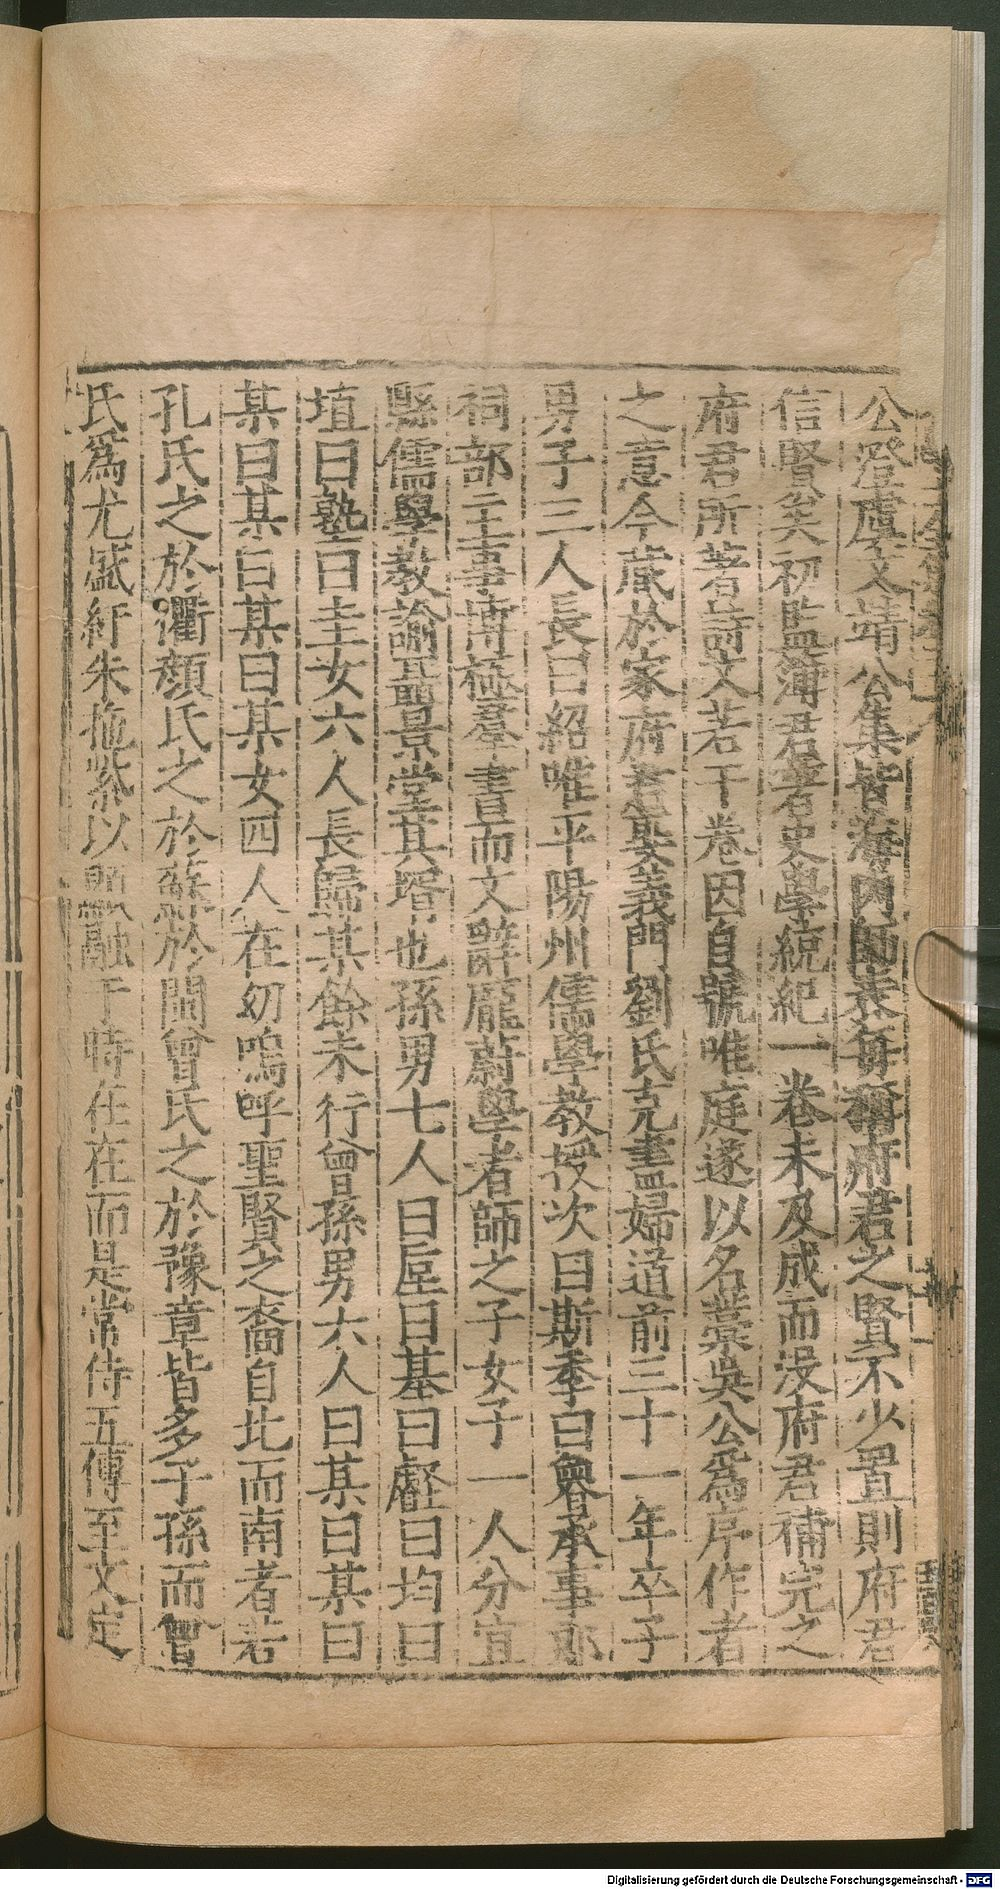 公澄虞文靖公集皆海內師表每稱府君之賢不少置則府君
信賢矣初監簿君著史學統紀一卷未及成而沒府君補完之
府君所著詩文若干卷因自號唯庭遂以名藁吳公爲序作者
之意今蔵於家府君娶義門劉氏克盡婦道前三十一年卒子
男子三人長曰紹唯平陽州儒學教授次曰斯季曰魯承事郎
祠部主事博極羣書而文辭龎蔚學者師之子女子一人分宜
縣儒學教諭聶景堂其壻也孫男七人曰垕曰基曰壡曰均曰
埴曰塾曰圭女六人長歸某餘未行曾孫男六人曰某曰某曰
某曰某曰某曰某女四人在幼嗚呼聖賢之裔自北而南者若
孔氏之於衢顏氏之於蘇於閩曾氏之於豫章皆多子孫而曾
氏爲尤盛紆朱拖紫以顯融于時在在而是常侍五傳至文定
Digitalisierung gefördert durch die Deutsche Forschungsgemeinschaft - DFG